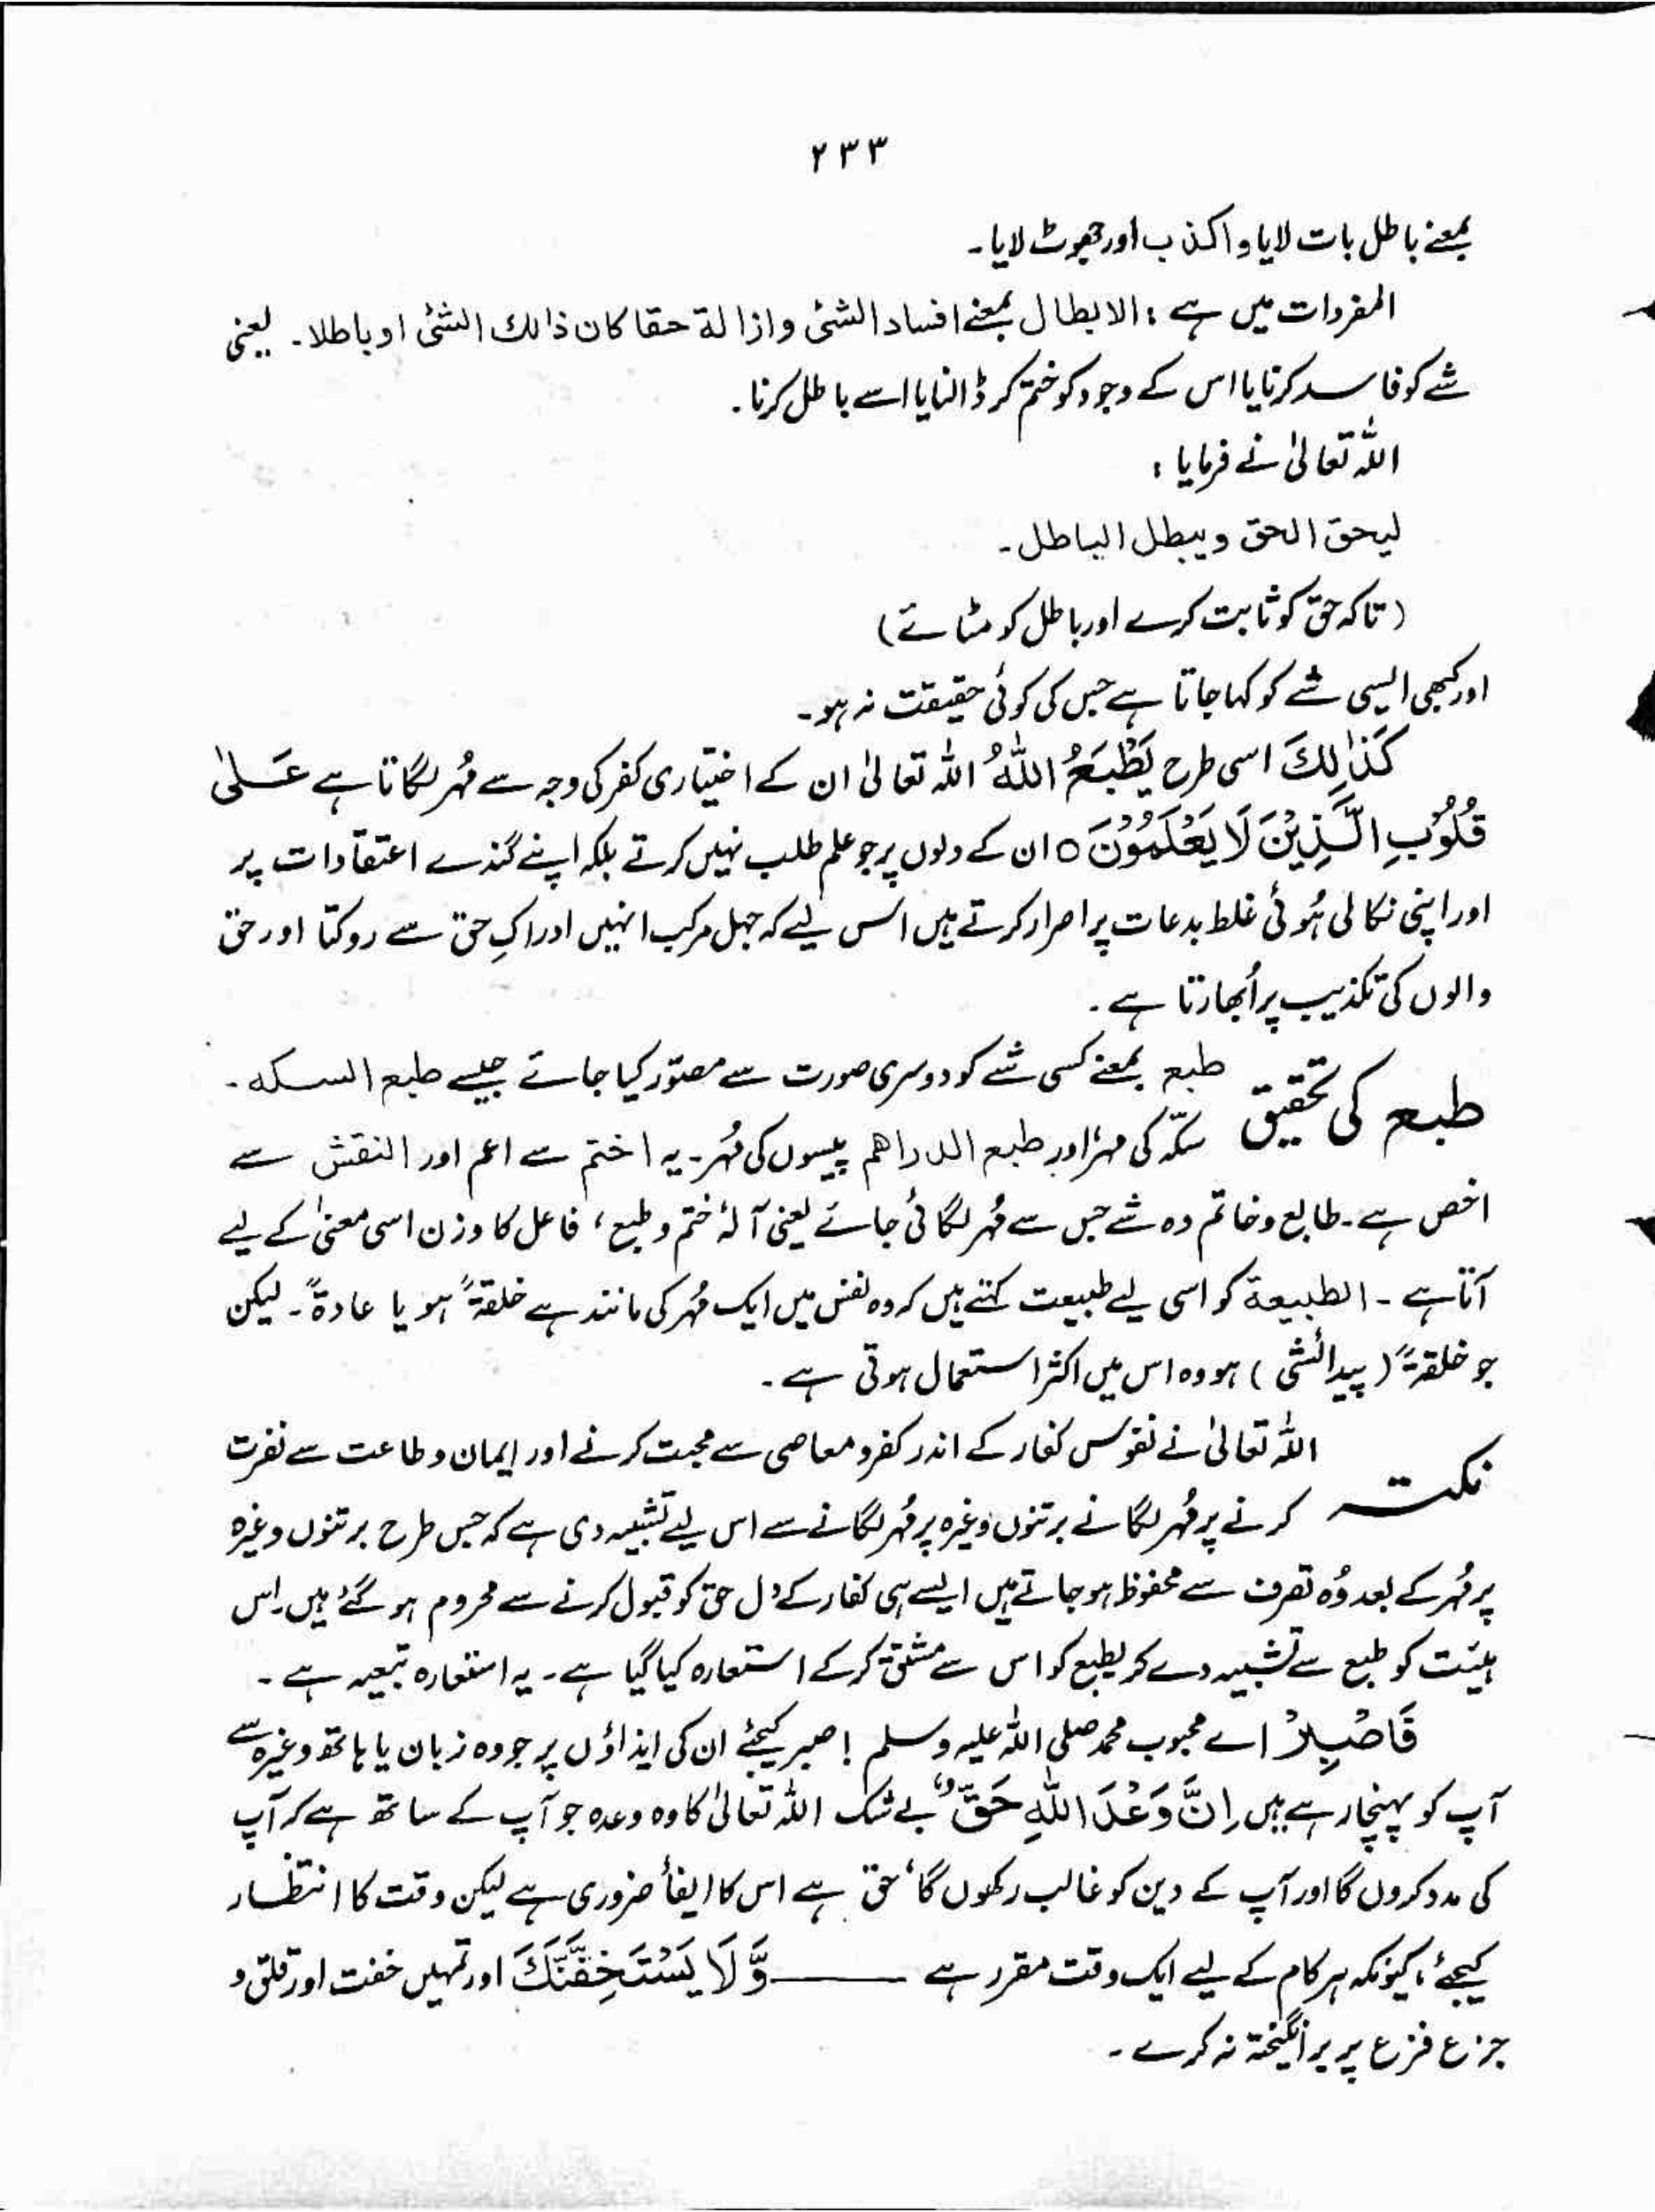 ۲۳۳
بمعنے باطل بات لایا و اکذب اور جھوٹ لایا۔
المفردات میں ہے : الابطال بمعنے افساد الشئ وازالة حقا کان ذالك الشئ او باطلا۔ یعنی
شے کو فاسد کرنا یا اس کے وجود کو ختم کر ڈالنا یا اسے باطل کرنا۔
اللہ تعالیٰ نے فرمایا :
لیحق الحق ویبطل الباطل۔
(تاکہ حق کو ثابت کرے اور باطل کو مٹائے)
اور کبھی ایسی شے کو کہا جاتا ہے جس کی کوئی حقیقت نہ ہو۔
كَذٰلِكَ اسی طرح يَطْبَعُ اللّٰهُ اللہ تعالیٰ ان کے اختیاری کفر کی وجہ سے مُہر لگاتا ہے عَلٰى
قُلُوْبِ الَّذِيْنَ لَا يَعْلَمُوْنَ ○ ان کے دلوں پر جو علم طلب نہیں کرتے بلکہ اپنے گندے اعتقادات پر
اور اپنی نکالی ہُوئی غلط بدعات پر اصرار کرتے ہیں اس لیے کہ جہل مرکب انہیں ادراکِ حق سے روکتا اور حق
والوں کی تکذیب پر اُبھارتا ہے۔
طبع کی تحقیق طبع بمعنے کسی شے کو دوسری صورت سے مصوّر کیا جائے جیسے طبع السکہ۔
سکّہ کی مہر، اور طبع الدراهم پیسوں کی مُہر۔ یہ اختم سے اعم اور النقش سے
اخص ہے۔ طابع و خاتم وہ شے جس سے مُہر لگائی جائے یعنی آلۂ ختم و طبع ، فاعل کا وزن اسی معنیٰ کے لیے
آتا ہے ۔ الطبیعة کو اسی لیے طبیعت کہتے ہیں کہ وہ نفس میں ایک مُہر کی مانند ہے خلقةً ہو یا عادةً۔ لیکن
جو خلقةً (پیدائشی) ہو وہ اس میں اکثر استعمال ہوتی ہے۔
نکتہ اللہ تعالیٰ نے نفوس کفار کے اندر کفر و معاصی سے محبت کرنے اور ایمان و طاعت سے نفرت
کرنے پر مُہر لگانے برتنوں وغیرہ پر مُہر لگانے سے اس لیے تشبیہ دی ہے کہ جس طرح برتنوں وغیرہ
پر مُہر کے بعد وُہ تصرف سے محفوظ ہو جاتے ہیں ایسے ہی کفار کے دل حق کو قبول کرنے سے محروم ہو گئے ہیں۔ اس
ہیئت کو طبع سے تشبیہ دے کر یطبع کو اس سے مشتق کر کے استعارہ کیا گیا ہے۔ یہ استعارہ تبعیہ ہے۔
فَاصْبِرْ اے محبوب محمد صلی اللہ علیہ وسلم ! صبر کیجئے ان کی ایذاؤں پر جو وہ زبان یا ہاتھ وغیرہ سے
آپ کو پہنچا رہے ہیں اِنَّ وَعْدَ اللّٰهِ حَقٌّ بے شک اللہ تعالیٰ کا وہ وعدہ جو آپ کے ساتھ ہے کہ آپ
کی مدد کروں گا اور آپ کے دین کو غالب رکھوں گا، حق ہے اس کا ایفاء ضروری ہے لیکن وقت کا انتظار
کیجئے ، کیونکہ ہر کام کے لیے ایک وقت مقرر ہے ——— وَّلَا يَسْتَخِفَّنَّكَ اور تمہیں خفت اور قلق و
جزع فزع پر برانگیختہ نہ کرے۔